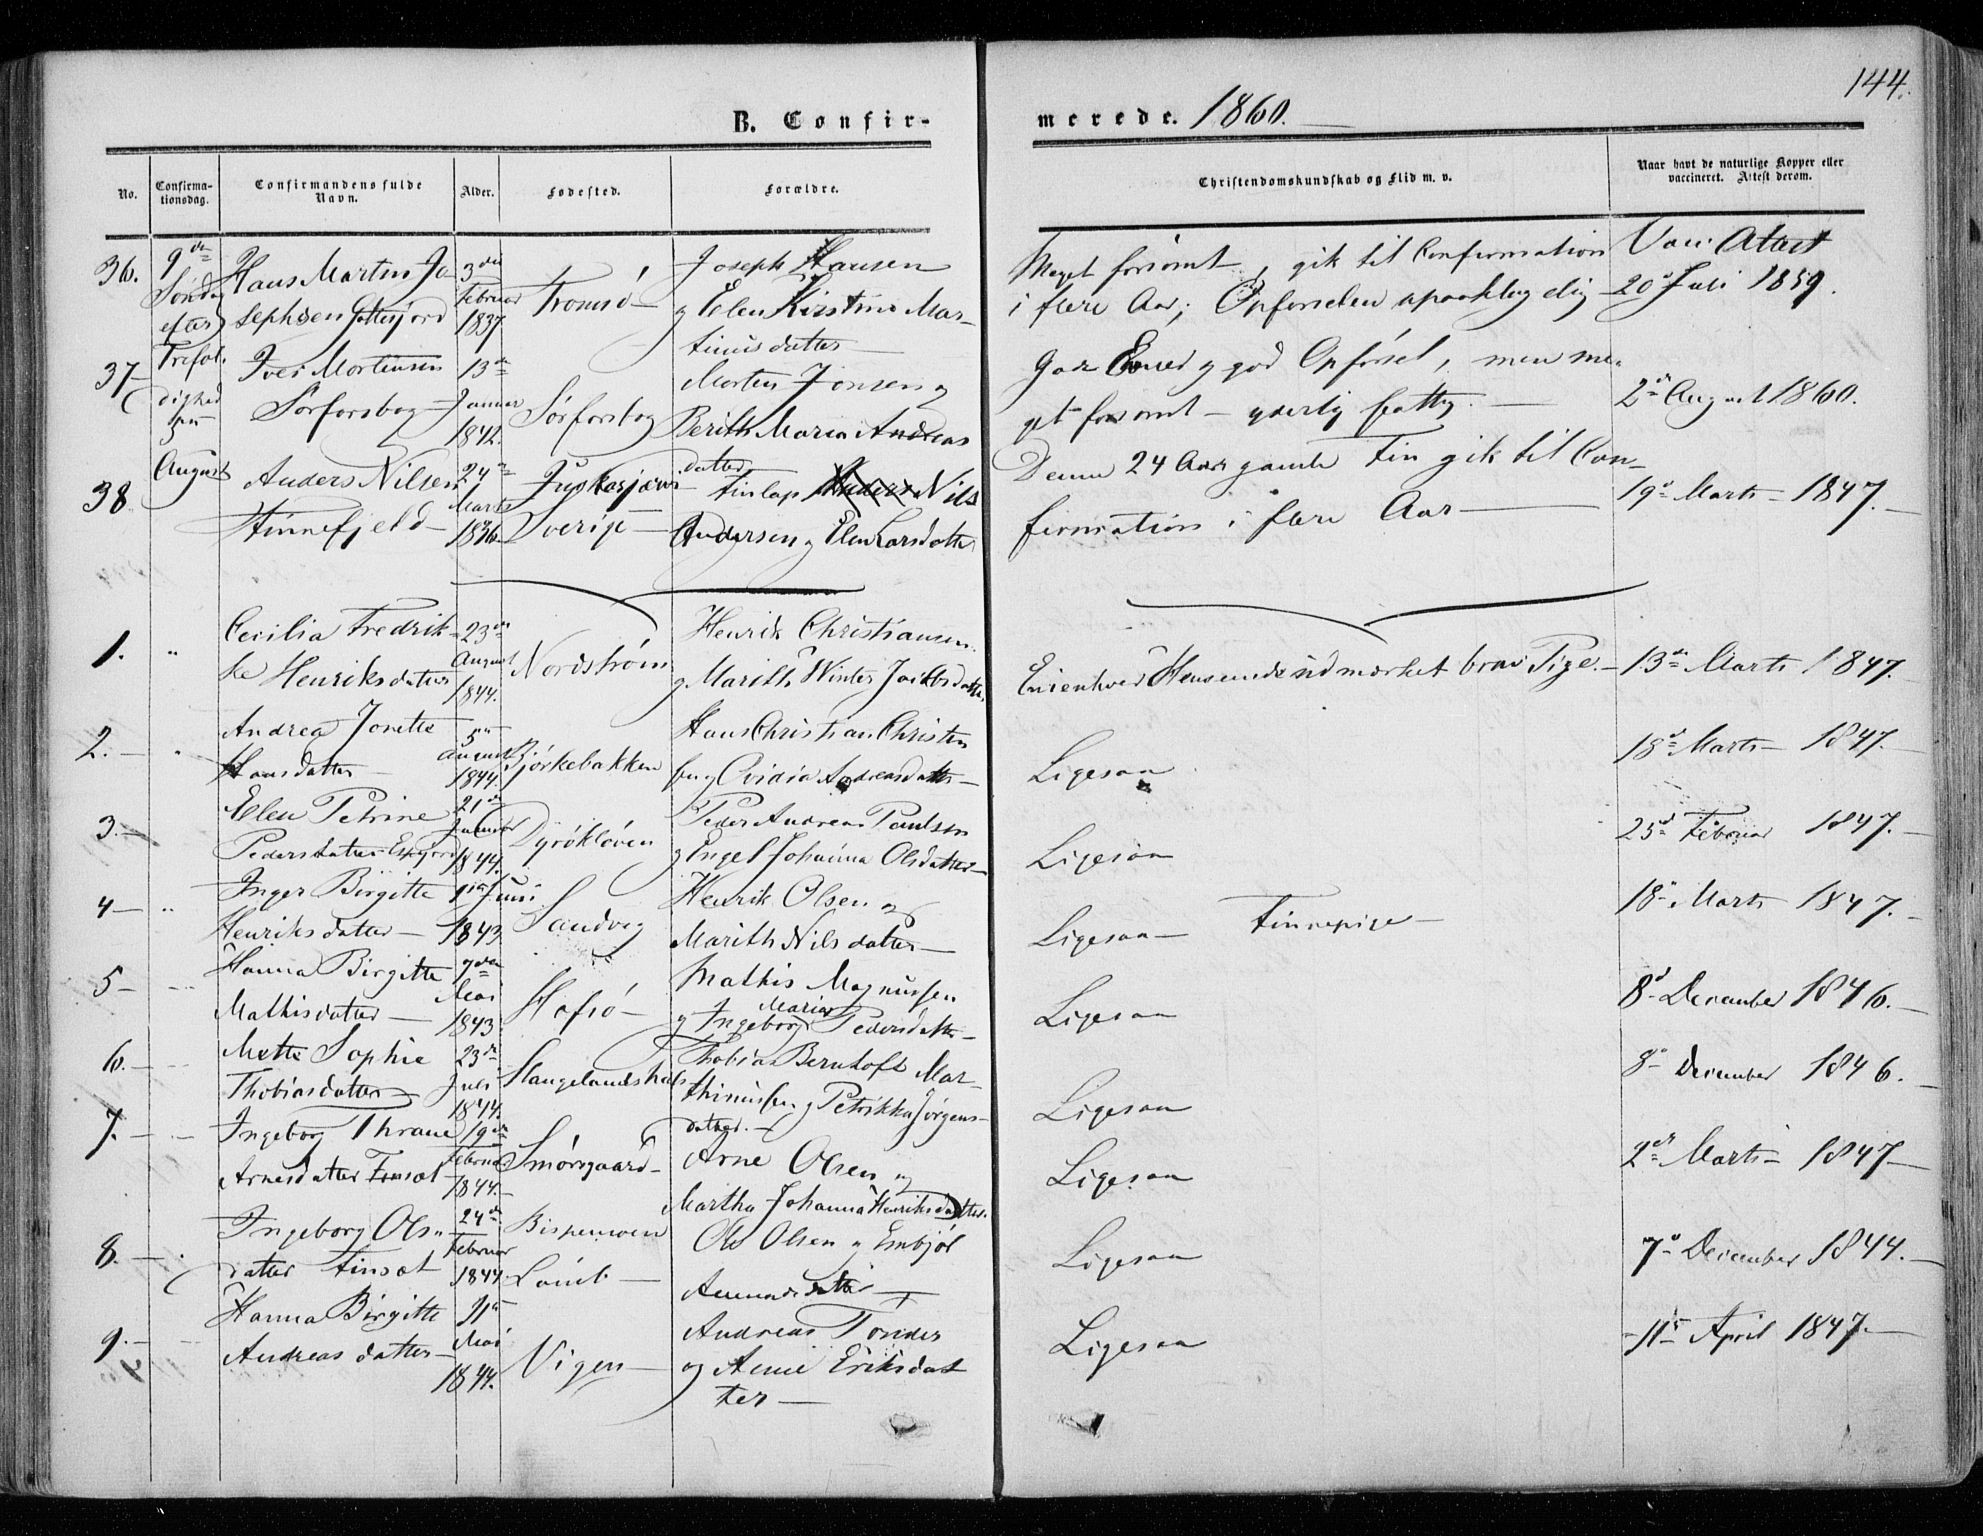 144.
B. Confir-
merede. 1860.
No.
Confirma-
tionsdag.
Confirmandens fulde
Navn.
Alder.
Fødested.
Forældre.
Christendomskundskab og Flid m. v.
Naar havt de naturlige Kopper eller
vaccineret. Attest derom.
36.
9de
Søndag
efter
Trefol.
dighed
5te
August
Hans Martin Jo
sephsen
3die
Februar
1837.
Tromsø
Joseph Hansen
og Elen Kirstine Mar-
tinusdatter
Meget forsømt, gik til Confirmation
i flere Aar; Opførselen upaaklagelig
20de Juli 1859.
37
Iver Mortensen
Sørforsbog
13de
Januar
1842.
Sørforsbog
Morten Jonsen og
Berith Maria Andreas
datter
god Opførsel, men me-
get forsømt - yderlig fattig.
2den August 1860.
38
Anders Nilsen
Finnefjeld
24de
Marts
1836.
Juckasjervi
Sverige
Finlap Anders Nils
Andersen og Elen Larsdatter
Denne 24 Aar gamle Fin gik til Con-
firmation i flere Aar
19de Marts 1847.
1.
Cecilia Fredrik-
ke Henriksdatter
23de
August
1844.
Nordstrøm
Henrik Christiansen
og Marith Winter Jacobsdatter
Henseende udmærket brav Pige.
13de Marts 1847.
2.
Andrea Jonette
Hansdatter
5te
August
1844.
Bjørkebakken
Hans Christian Christen
sen og Ovidia Andreasdatter
Ligesaa
18de Marts 1847.
3.
Elen Petrine
Pedersdatter
21de
1844.
Dyrøkløven
Peder Andreas Paulsen
og Engel Johanna Olsdatter
Ligesaa
25de Februar 1847.
4
Inger Birgitte
Henriksdatter
1ste Juni
1843.
Sandvig
Henrik Olsen og
Marith Nilsdatter
Ligesaa Finnepige
18de Marts 1847.
5
Hanna Birgitte
Mathisdatter
7de
Mai
1843
Hofsø
Mathis Magnussen
Maria
og Ingeborg Pedersdatter
Ligesaa
8de December 1846.
6.
Mette Sophie
Thobiasdatter
23de
Juli
1844.
Stangelandshals
Thobias Bernhoft Mar-
thinussen og Petrikka Jørgens-
datter.
Ligesaa
8de December 1846.
7.
Ingeborg Thrane
Arnesdatter Finsæt
19de
Februar
1844.
Smørsgaard
Arne Olsen og
Martha Johanna Henriksdatter.
Ligesaa
2den Marts 1847
8.
Ingeborg Ols-
datter Finsæt
24de
Februar
1844.
Ole Olsen og Embjør
Amundsdatter
Ligesaa
7de December 1844.
9.
Hanna Birgitte
Andreasdatter
11te
Mai
1844.
Vigen
Andreas Tønder
og Anne Eriksdat
ter
Ligesaa
11te April 1847.